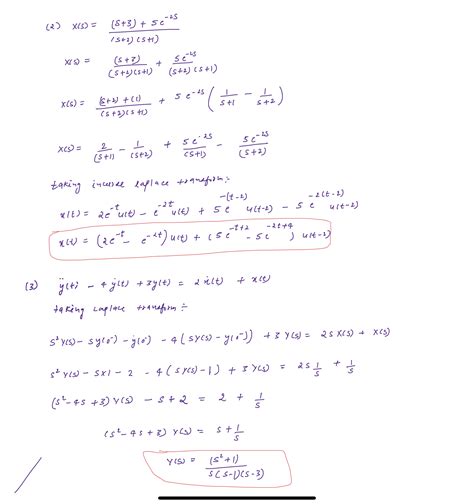 (2) X(s) = ((s+3) + 5e^{-2s}) / ((s+2)(s+1))
X(s) = (s+3) / ((s+2)(s+1)) + 5e^{-2s} / ((s+2)(s+1))
X(s) = ((s+2) + (1)) / ((s+2)(s+1)) + 5e^{-2s} ( 1/(s+1) - 1/(s+2) )
X(s) = 2/(s+1) - 1/(s+2) + 5e^{-2s}/(s+1) - 5e^{-2s}/(s+2)
taking inverse laplace transform:-
x(t) = 2e^{-t} u(t) - e^{-2t} u(t) + 5e^{-(t-2)} u(t-2) - 5e^{-2(t-2)} u(t-2)
x(t) = (2e^{-t} - e^{-2t}) u(t) + (5e^{-t+2} - 5e^{-2t+4}) u(t-2)
(3) ÿ(t) - 4ẏ(t) + 3y(t) = 2ẋ(t) + x(t)
taking Laplace transform:-
s²Y(s) - sy(0⁻) - ẏ(0⁻) - 4(sY(s) - y(0⁻)) + 3Y(s) = 2sX(s) + X(s)
s²Y(s) - s×1 - 2 - 4(sY(s) - 1) + 3Y(s) = 2s 1/s + 1/s
(s²-4s+3) Y(s) - s + 2 = 2 + 1/s
(s²-4s+3) Y(s) = s + 1/s
Y(s) = (s²+1) / (s(s-1)(s-3))